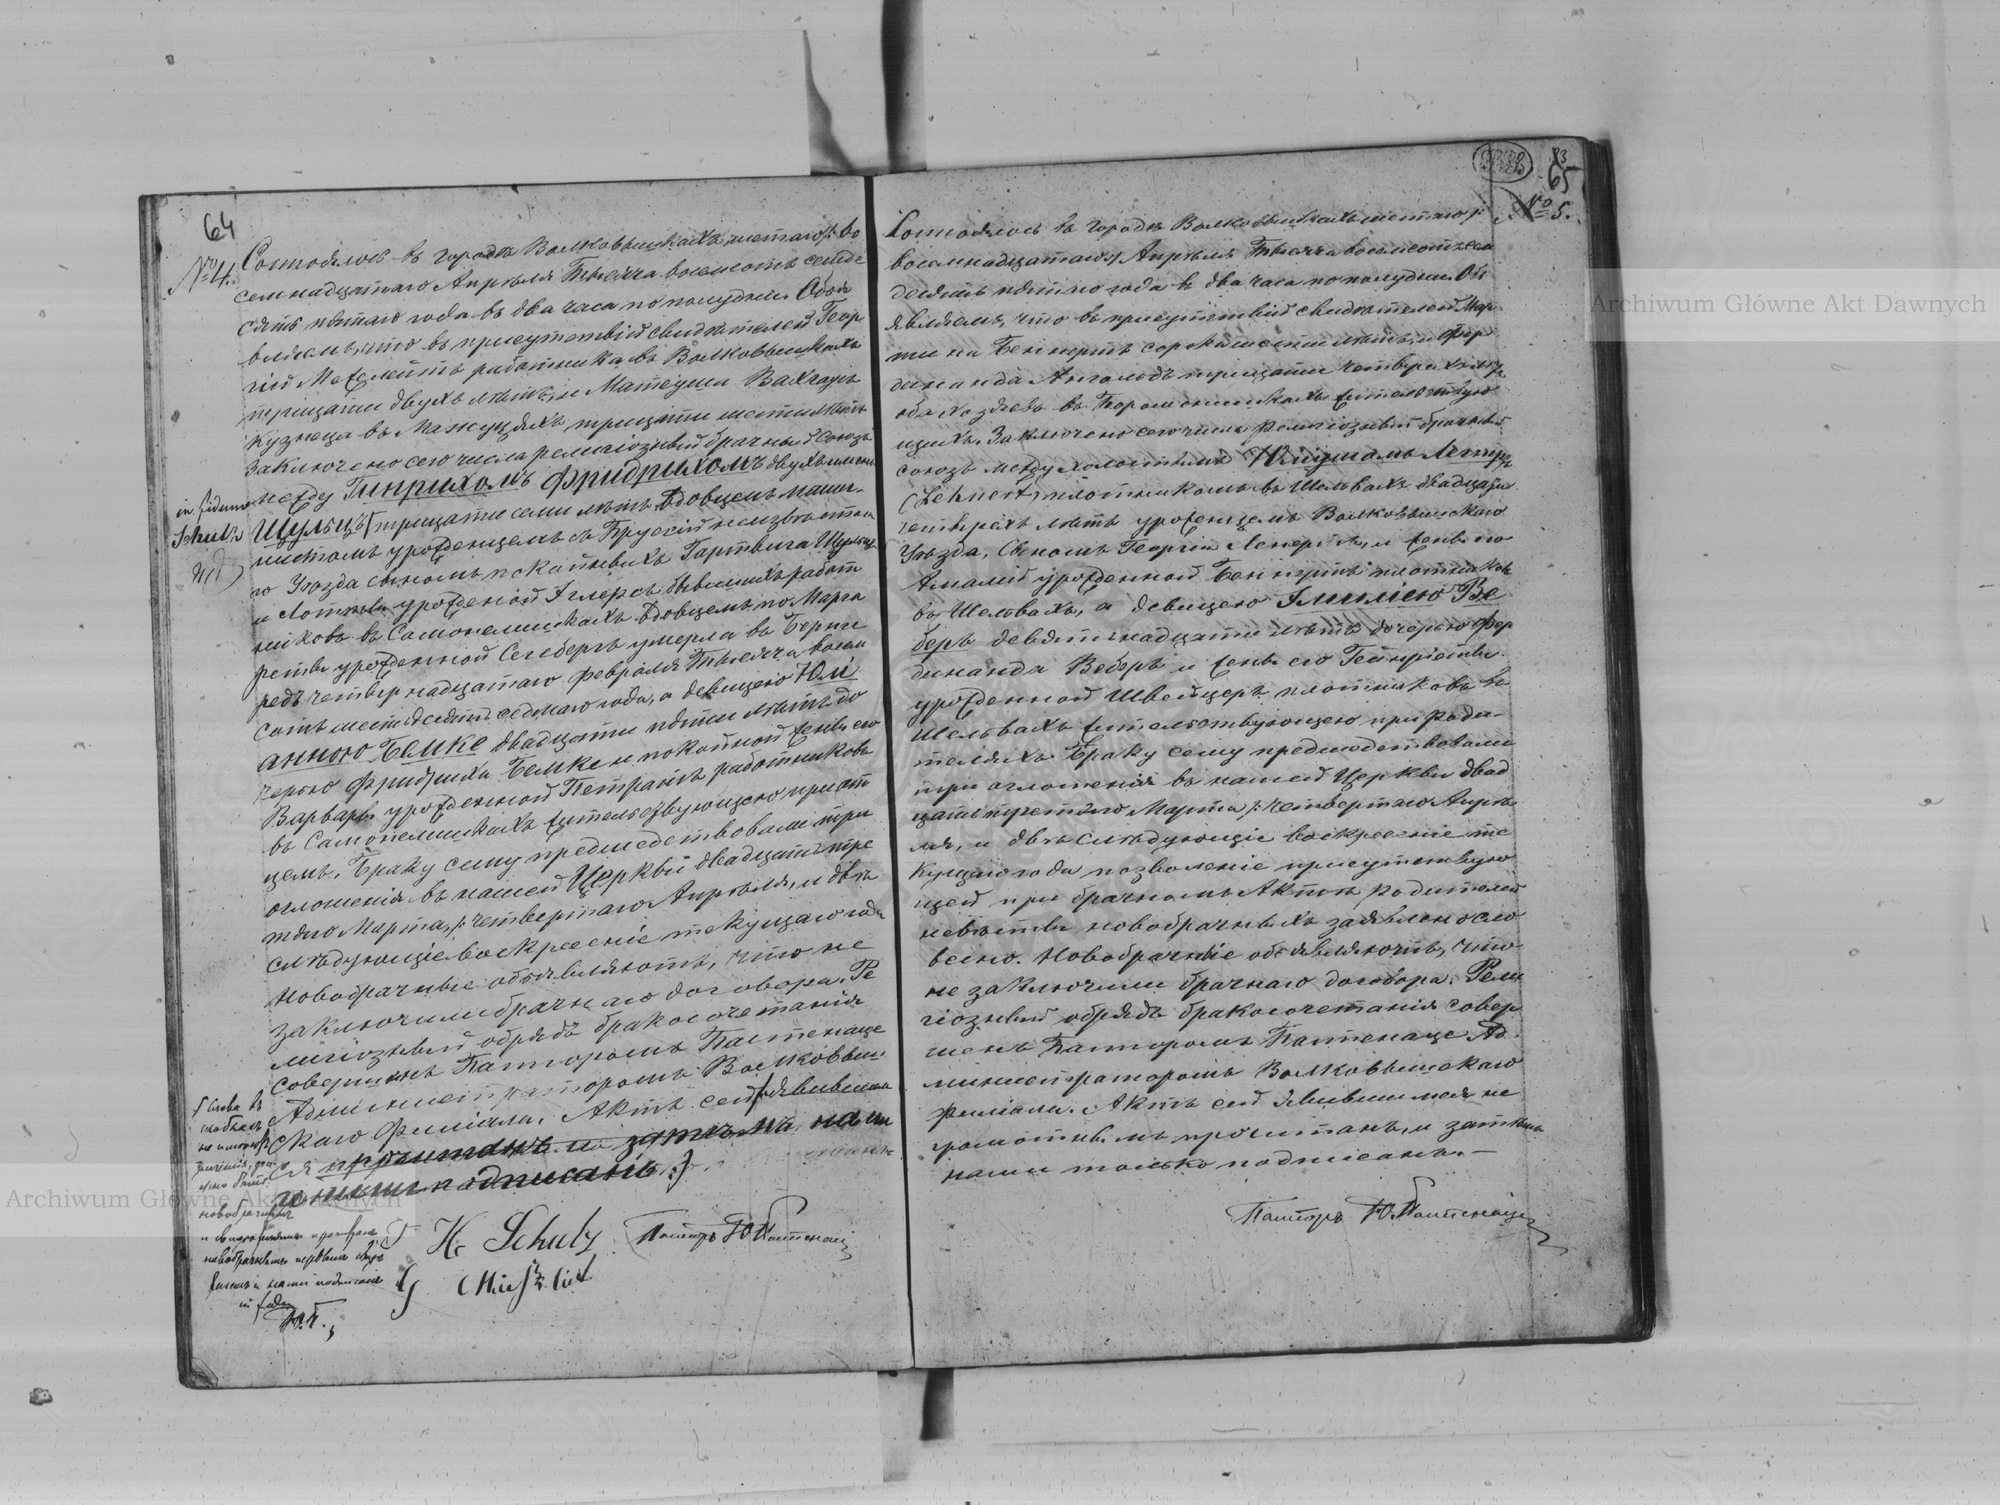 64
№ 4.
Состоялось въ городѣ Волковышкахъ шестаго /: во
семнадцатаго Апрѣля тысяча восемсотъ семде
сятъ пятаго года въ два часа по полудни. Объя
вляемъ, что въ присутствіи свидѣтелей Геор
гій работника въ Волковышкахъ
трицати двухъ лѣтъ, и Матеуша
Кузнеца въ трицати шести лѣтъ
заключено сего числа религіозный брачный союзъ
между Гинрихомъ Фридрихомъ двухъ именъ
in fidem
Schultz
Шульцъ [трицати семи лѣтъ вдовцемъ маши-
нистомъ урожденцемъ съ Пруссіи неизвѣстна
го Уѣзда сыномъ покойныхъ Гартвига Шульца
и урожденной бывшихъ работ
никовъ въ вдовцемъ по Марга
ретѣ урожденной Сегебергъ умерла въ
редъ четвернадцатаго Февраля тысяча восем
сотъ шестьдесятъ седмаго года, а девицею Юлі
анною Белке двадцати пяти лѣтъ до
черью Фридриха Белке и покойной жены его
Варвары урожденной работниковъ
въ жительствующею при от
цемъ. Браку сему предшедствовали три
оглошенія въ нашей Церкви двадцать тре
тяго Марта, /: четвертаго Апрѣля, и двѣ
слѣдующіе воскресеніе текущаго года
Новобрачные объявляютъ, что не
заключили брачнаго договора. Ре
лигіозный обрядъ бракосочетанія
совершенъ Пасторомъ Пастенаце
Администраторомъ Волковыш
скаго Филіала. Актъ сей явившим
ся прочитанъ и затѣмъ нами
и ними подписанъ.
слова въ
скобкахъ
новобрачнымъ
и свидѣтелямъ прочитанъ,
новобрачнымъ первымъ
и нами подписанъ
in fidem
Ю.П.
H. Schulz Пасторъ Ю. Пастенаци
G
83
65
№ 5.
Состоялось въ городѣ Волковышкахъ шестаго /:
восемнадцатаго/ Апрѣля тысяча восемсотъ сем
десятъ пятаго года въ два часа по полудни. Объ
являемъ, что въ присутствіи свидѣтелей Мар
тина Беннертъ сорока шести лѣтъ, и Фер
динанда трицати четверахъ лѣтъ
оба хозяева въ жительствую
щихъ. Заключено сего числа религіозный брачный
союзъ между холостымъ Юліушомъ
(Lehnert) плотникомъ въ Шельвахъ двадцати
четверахъ лѣтъ урожденцемъ Волковышскаго
Уѣзда, сыномъ Георгія Ленертъ, и жены его
Амаліи урожденной Беннертъ плотниковъ
въ Шельвахъ, а девицею Эмиліею Ве
беръ девятьнадцати лѣтъ дочерью Фер
динанда Веберъ и жены его Гейнріэтты
урожденной Швейцеръ плотниковъ въ
Шельвахъ жительствующею при роди-
теляхъ. Браку сему предшедствовали
три оглошенія въ нашей Церкви двад
цать третяго Марта /: четвертаго Апрѣ
ля, и двѣ слѣдующіе воскресеніе те
кущаго года позволеніе присутствую
щей при брачномъ Актѣ родителей
невѣсты новобрачныхъ заявлено сло
весно. Новобрачніе объявляютъ, что
не заключили брачнаго договора. Рели
гіозный обрядъ бракосочетанія совер
шенъ Пасторомъ Пастенаце Ад-
министраторомъ Волковышскаго
Филіала. Актъ сей явившимся не
грамотнымъ прочитанъ, и затѣмъ
нами только подписанъ.—
Пасторъ Ю. Пастенаци
Archiwum Główne Akt Dawnych
Archiwum Główne Akt Dawnych